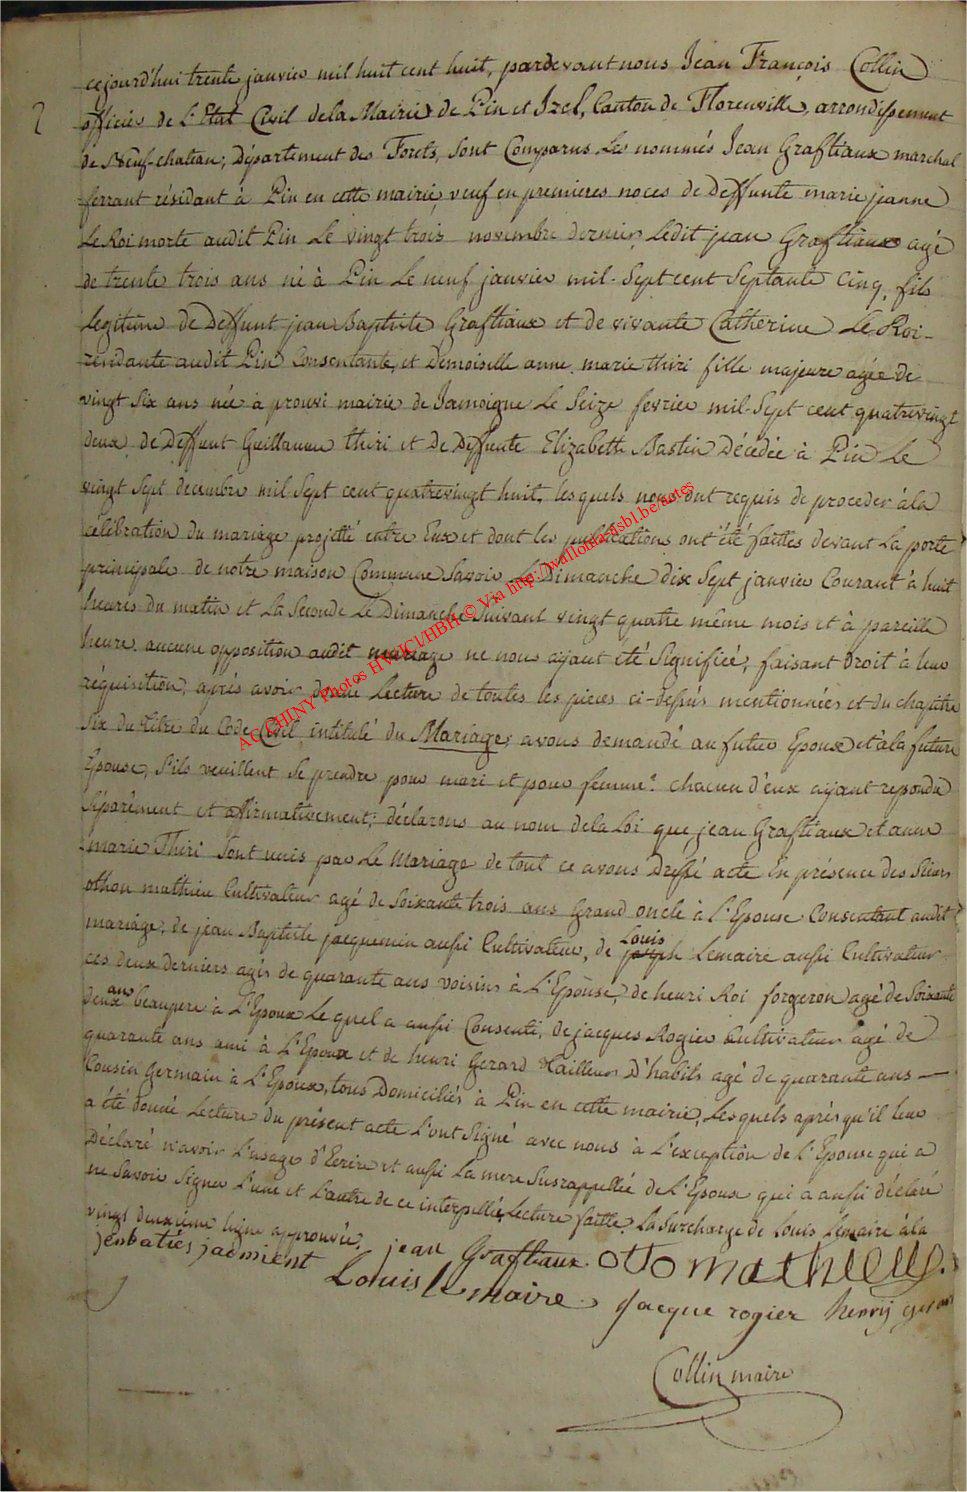 2
cejourd'hui trente janvier mil huit cent huit, pardevant nous Jean François Collin
officier de L'Etat Civil de la Mairie de Pin et Izel, Canton de Florenville, arrondissement
de Neuf-chateau, Département des Forets, sont Comparus Les nommés Jean Graftiaux marchal
ferrant résidant à Pin en cette mairie, veuf en premieres noces de deffunte marie jeanne
Le Roi morte audit Pin Le vingt trois novembre dernier, Ledit jean Graftiaux agé
de trente trois ans né à Pin Le neuf janvier mil-Sept cent Septante Cinq, fils
Legitime de Deffunt jean Baptiste Graftiaux et de vivante Catherine Le Roi-
residante audit Pin Consentante, et Demoiselle anne marie thiri fille majeure agée de
vingt Six ans née à prouvi mairie de Jamoigne Le Seize fevrier mil-Sept cent quatrevingt
deux, de Deffunt Guillaume thiri et de Deffunte Elizabeth Bastin Décédée à Pin Le
vingt Sept decembre mil Sept cent quatrevingt huit, lesquels nous ont requis de proceder à la
celébration du mariage projetté entre Eux et dont les publications ont été faittes devant La porte
principale de notre maison Commune Savoir Le Dimanche dix Sept janvier Courant à huit
heures du matin et La Seconde Le Dimanche Suivant vingt quatre même mois et à pareille
heure. aucune opposition audit mariage ne nous ayant été Signifiée, faisant droit à leur
réquisition, après avoir donné Lecture de toutes les pieces ci-dessus mentionnées et du chapitre
Six du titre du Code Civil intitulé du Mariage, avons demandé au futur Epoux et à la future
Epouse, S'ils veuillent Se prendre pour mari et pour femme. chacun d'eux ayant repondu
Séparément et affirmativement, déclarons au nom de la Loi que jean Graftiaux et anne
marie Thiri Sont unis par Le Mariage de tout ce avons Dressé acte En présence des Sieurs
othon mathieu Cultivateur agé de Soixante trois ans Grand oncle à L'Epouse Consentant audit
mariage, de jean Baptiste jacquemin aussi Cultivateur, de Louis Lemaire aussi Cultivateur
ces deux derniers agés de quarante ans voisins à L'Epouse, de henri Roi forgeron agé de Soixante
deux ans beaupere à L'Epoux Le quel a aussi Consenti, de jacques Rogier Cultivateur agé de
quarante ans ami à L'Epoux et de henri Gerard tailleur D'habits agé de quarante ans —
Cousin Germain à L'Epoux, tous Domiciliés à Pin en cette mairie, Lesquels après qu'il leur
a été donné Lecture du présent acte L'ont Signé avec nous à L'exception de L'Epouse qui a
Déclaré n'avoir L'usage d'Ecrire et aussi La mere Susrappellée de L'Epoux qui a aussi déclaré
ne Savoir Signer L'une et L'autre de ce interpellée, Lecture faitte. La Surcharge de Louis Lemaire à la
vingt deuxieme ligne approuvée. jean Graftiaux. otto mathieu.
Louis le maire jacque rogier henrÿ
Collin maire
AC CHINY Photos HWJCVHBH © Via http://wallonia-asbl.be/notes